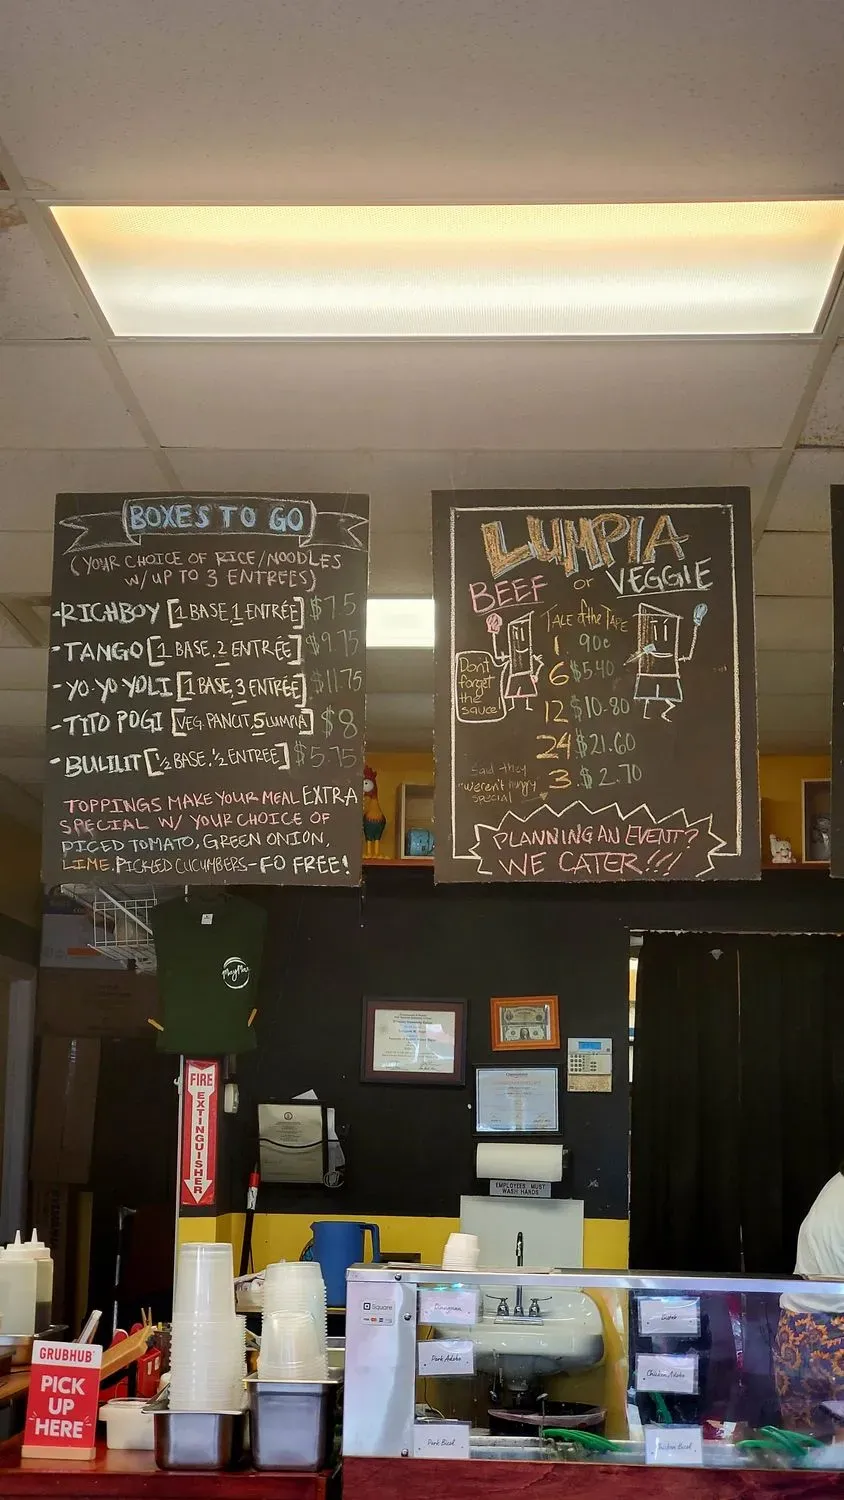 BOXES TO GO
(YOUR CHOICE OF RICE/NOODLES
W/UP TO 3 ENTREES)
-RICHBOY [1 BASE, 1 ENTRÉE] $7.5
-TANGO [1 BASE, 2 ENTRÉE] $9.75
-YO-YO YOLI [1 BASE, 3 ENTRÉE] $11.75
-TITO POGI [VEG. PANCIT, 5 LUMPIA] $8
-BULILIT [½ BASE, ½ ENTREE] $5.75
TOPPINGS MAKE YOUR MEAL EXTRA
SPECIAL W/ YOUR CHOICE OF
DICED TOMATO, GREEN ONION,
LIME, PICKED CUCUMBERS-FO FREE!
LUMPIA
BEEF or VEGGIE
TALE of the TAPE
1 90¢
6 $5.40
12 $10.80
24 $21.60
3 $2.70
Dont
forget
the
sauce!
Said they
"weren't hungry"
special
PLANNING AN EVENT?
WE CATER!!!
FIRE
EXTINGUISHER
EMPLOYEES MUST
WASH HANDS
GRUBHUB
PICK
UP
HERE
Square
Dinuguan
Pork Adobo
Pork Bicol
Chicken Adobo
Chicken Bicol